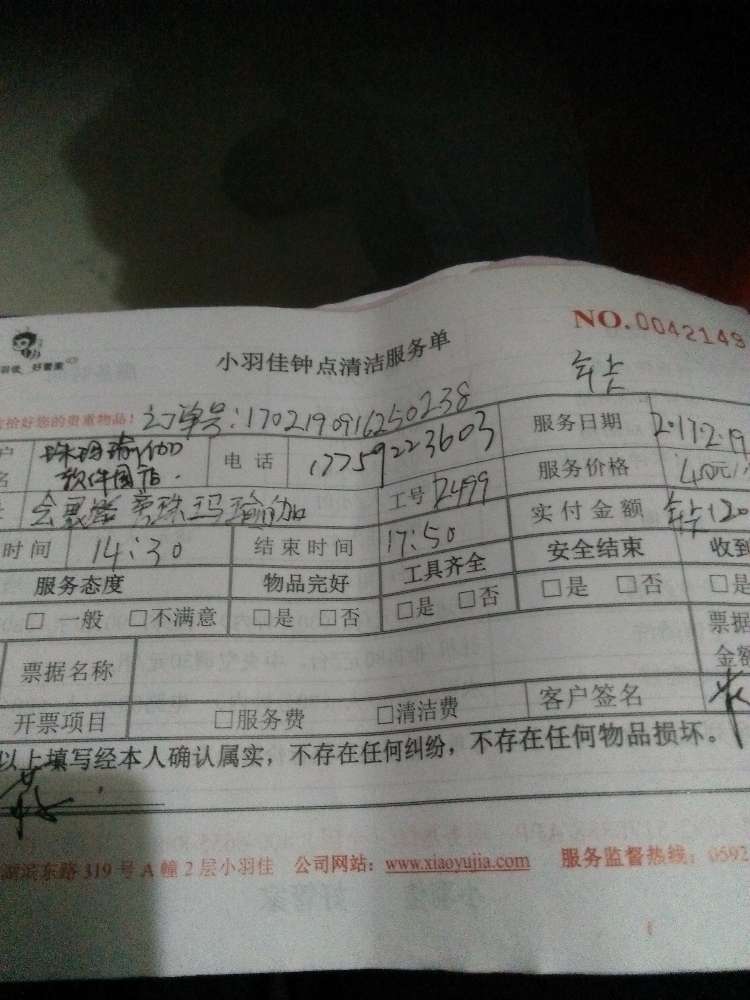 NO.0042149
小羽佳钟点清洁服务单
年卡
好管家
恰好您的贵重物品！ 订单号：1702190916250238
电话 17759223603 服务日期 2017.2.19
珠玛瑜伽
软件园
工号 2499 服务价格 40元/
珠玛瑜伽
实付金额 年卡120
时间 14:30 结束时间 17:50 安全结束 收到
服务态度 物品完好 工具齐全 □是 □否 □是
□一般 □不满意 □是 □否 □是 □否 票据
票据名称 金额
开票项目 □服务费 □清洁费 客户签名
以上填写经本人确认属实，不存在任何纠纷，不存在任何物品损坏。
湖滨东路319号A幢2层小羽佳 公司网站：www.xiaoyujia.com 服务监督热线：0592